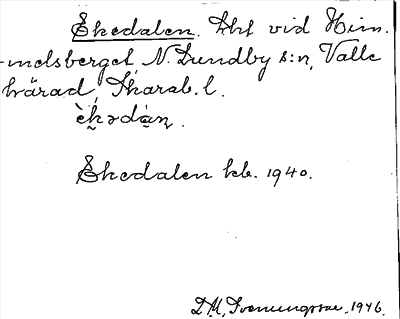 Ekedalen. Lht vid Him-
melsberget N. Lundby s:n, Valle
härad, Skarab. l.
èkədàn̥.
Ekedalen kb. 1940.
D. M. Svenungsson. 1946.